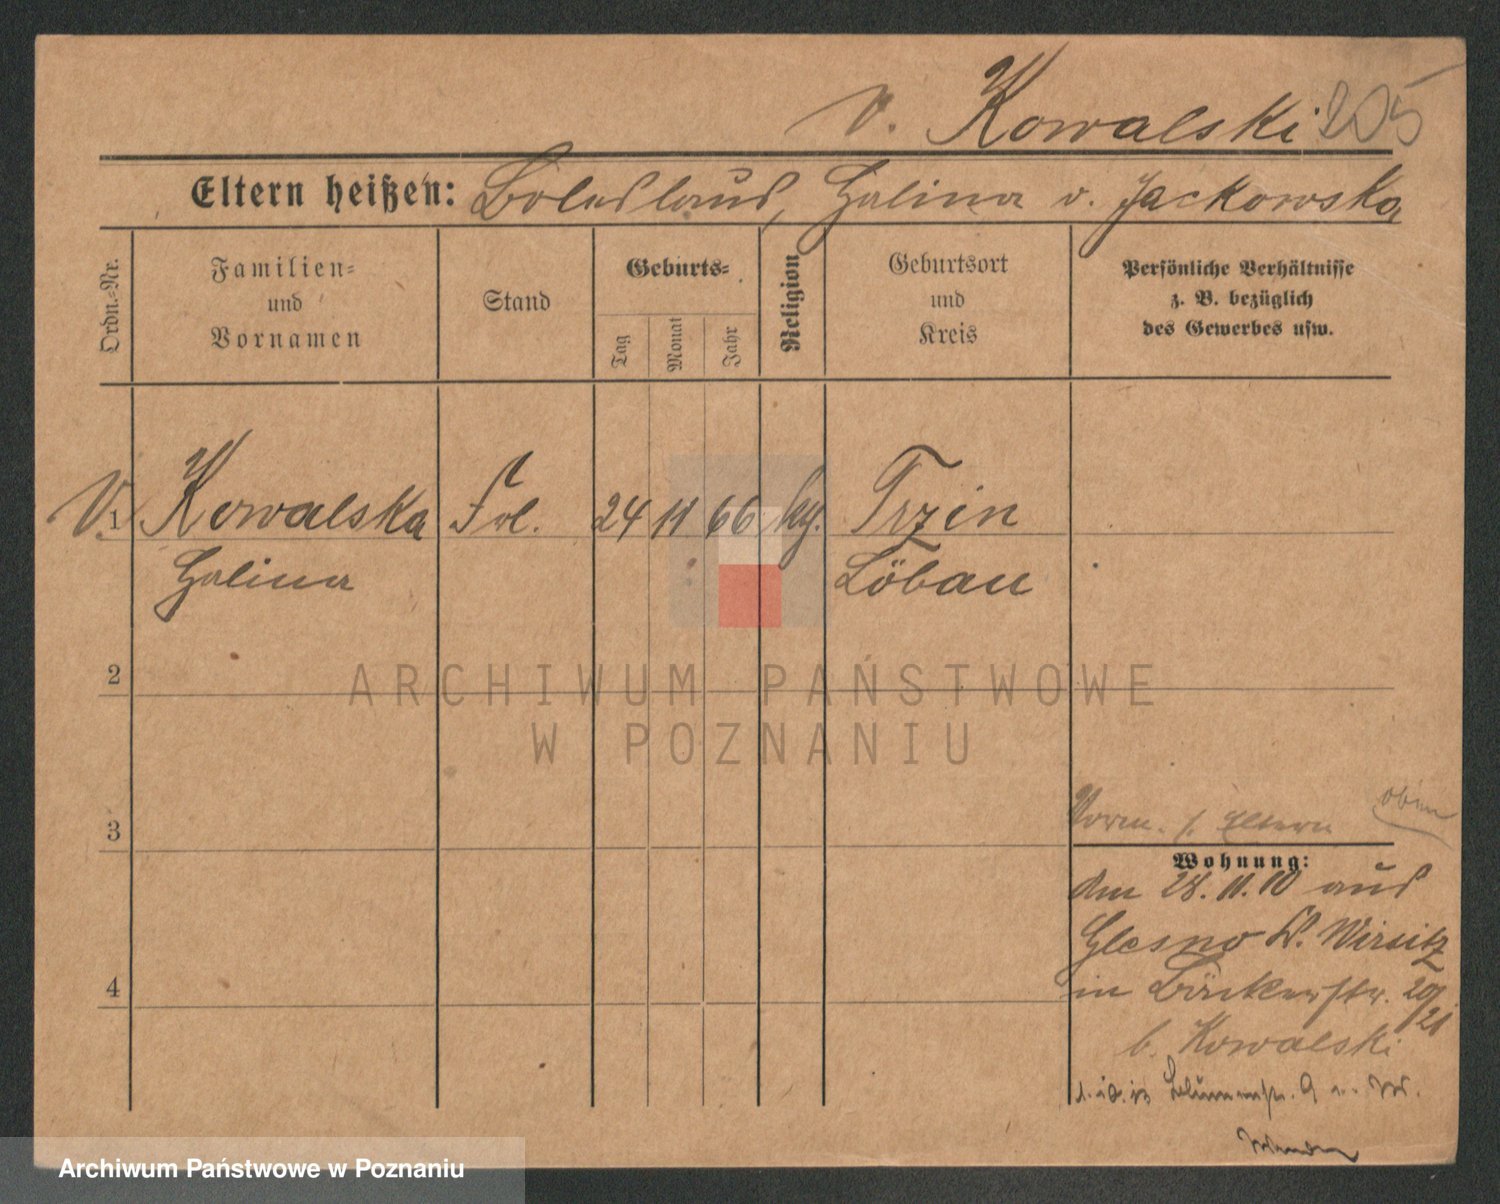 v. Kowalski 205
Eltern heißen: Boleslaus, Halina v. Jackowska
Ordn.=Nr.
Familien=
und
Vornamen
Stand
Geburts=
Tag
Monat
Jahr
Religion
Geburtsort
und
Kreis
Persönliche Verhältnisse
z. B. bezüglich
des Gewerbes usw.
v. 1 Kowalska Frl. 24 11 66 kg. Trzin
Halina Löbau
2
ARCHIWUM PAŃSTWOWE
W POZNANIU
3
Vorm. s. Eltern oben
Wohnung:
Am 28.11.10 aus
Glesno K. Wirsitz
in Bäckerstr. 20/21
b. Kowalski
4
Blumenstr. 9
Archiwum Państwowe w Poznaniu